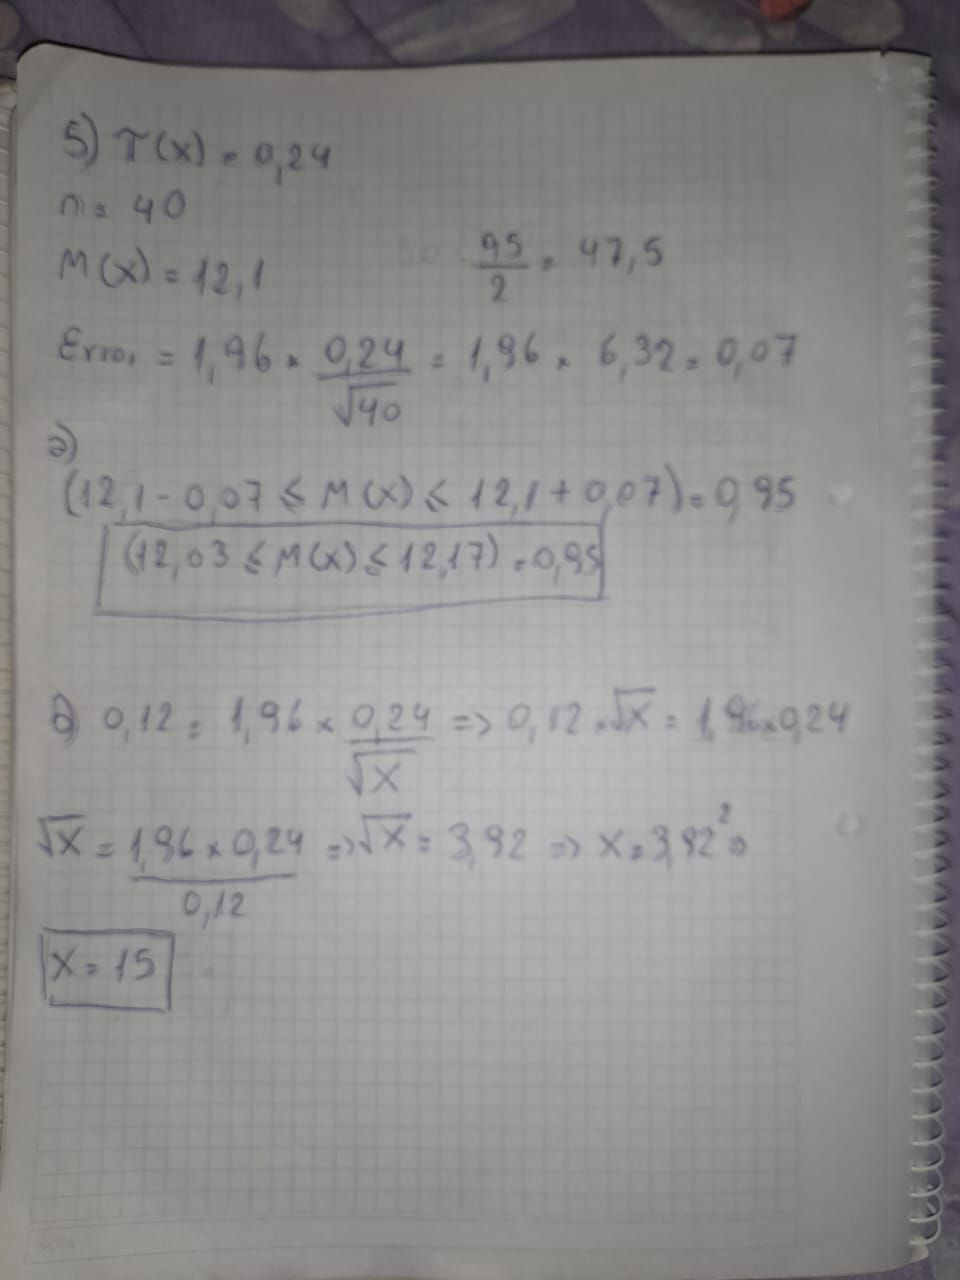 5) T(x) = 0,24
n = 40
M(x) = 12,1
95/2 = 47,5
Error = 1,96 × 0,24/√40 = 1,96 × 6,32 = 0,07
a)
(12,1 - 0,07 ≤ M(x) ≤ 12,1 + 0,07) = 0,95
(12,03 ≤ M(x) ≤ 12,17) = 0,95
b) 0,12 = 1,96 × 0,24/√x => 0,12 × √x = 1,96 × 0,24
√x = 1,96 × 0,24/0,12 => √x = 3,92 => x = 3,92² =>
x = 15